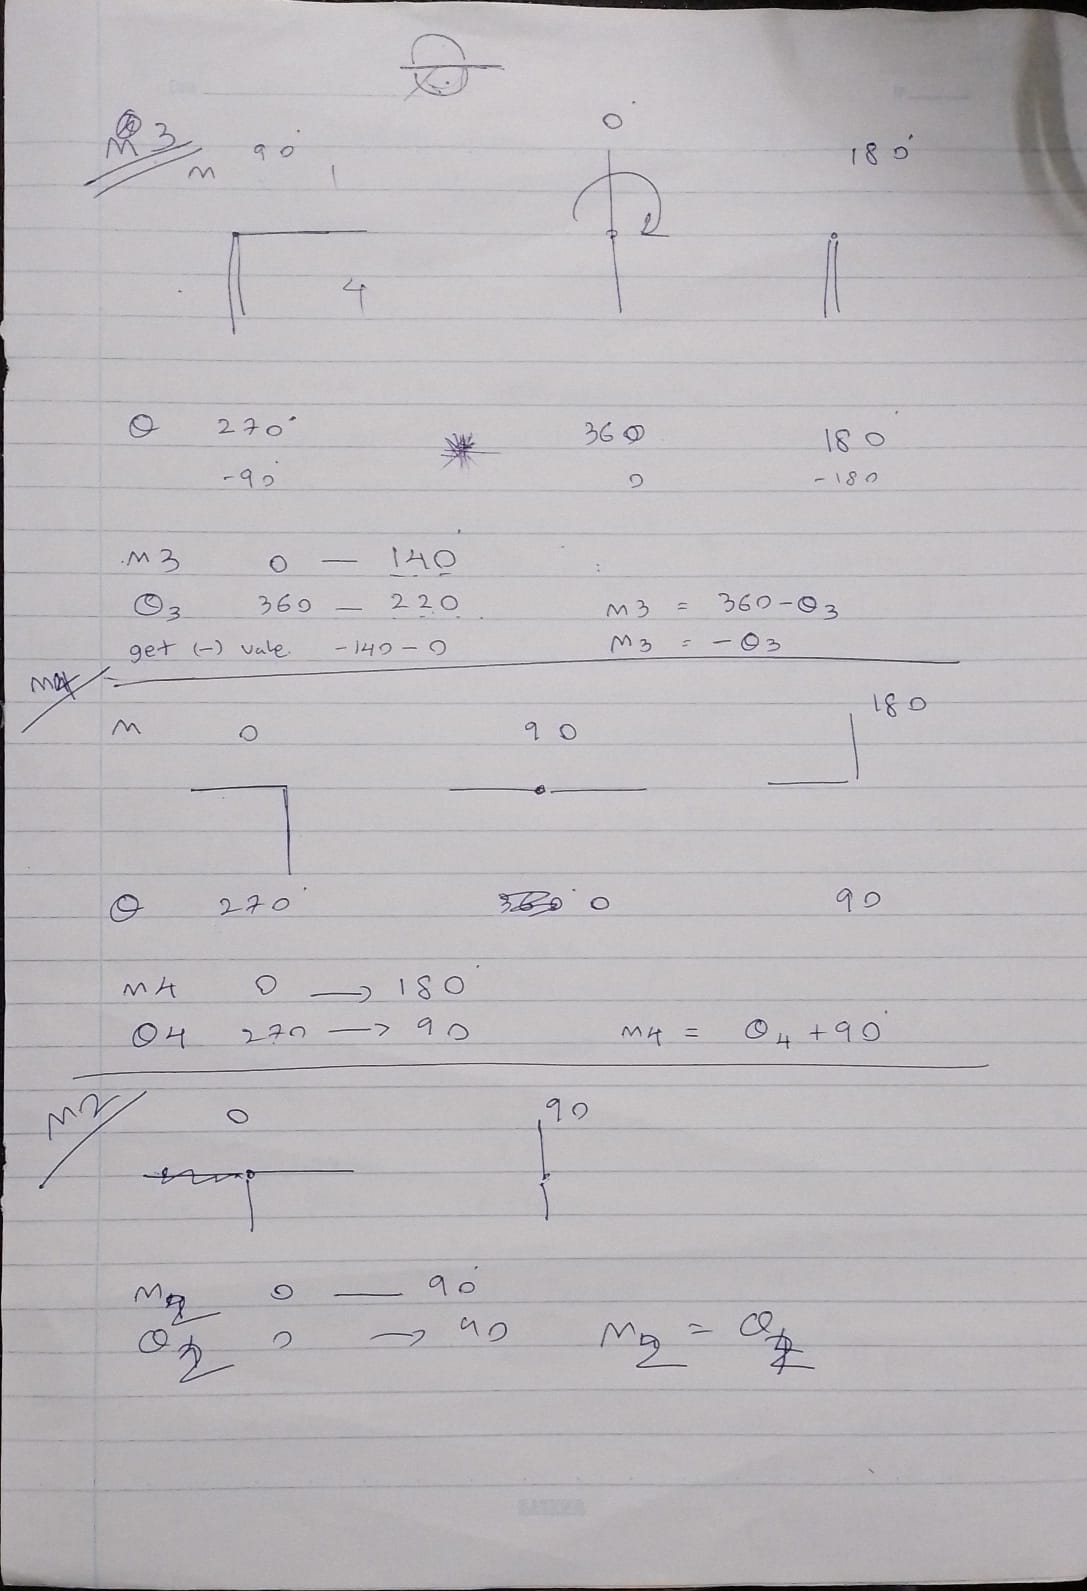 M 3
0°
M 90° 180°
4
Θ 270° 360 180
-90° 0 -180
M3 0 — 140°
Θ3 360 — 220 M3 = 360-Θ3
get (-) vale. -140 - 0 M3 = -Θ3
M4
M 0 90 180
Θ 270° 0 90
M4 0 → 180°
Θ4 270 → 90 M4 = Θ4 + 90°
M2 0 90
M2 0 — 90°
Θ2 0 → 90 M2 = Θ2